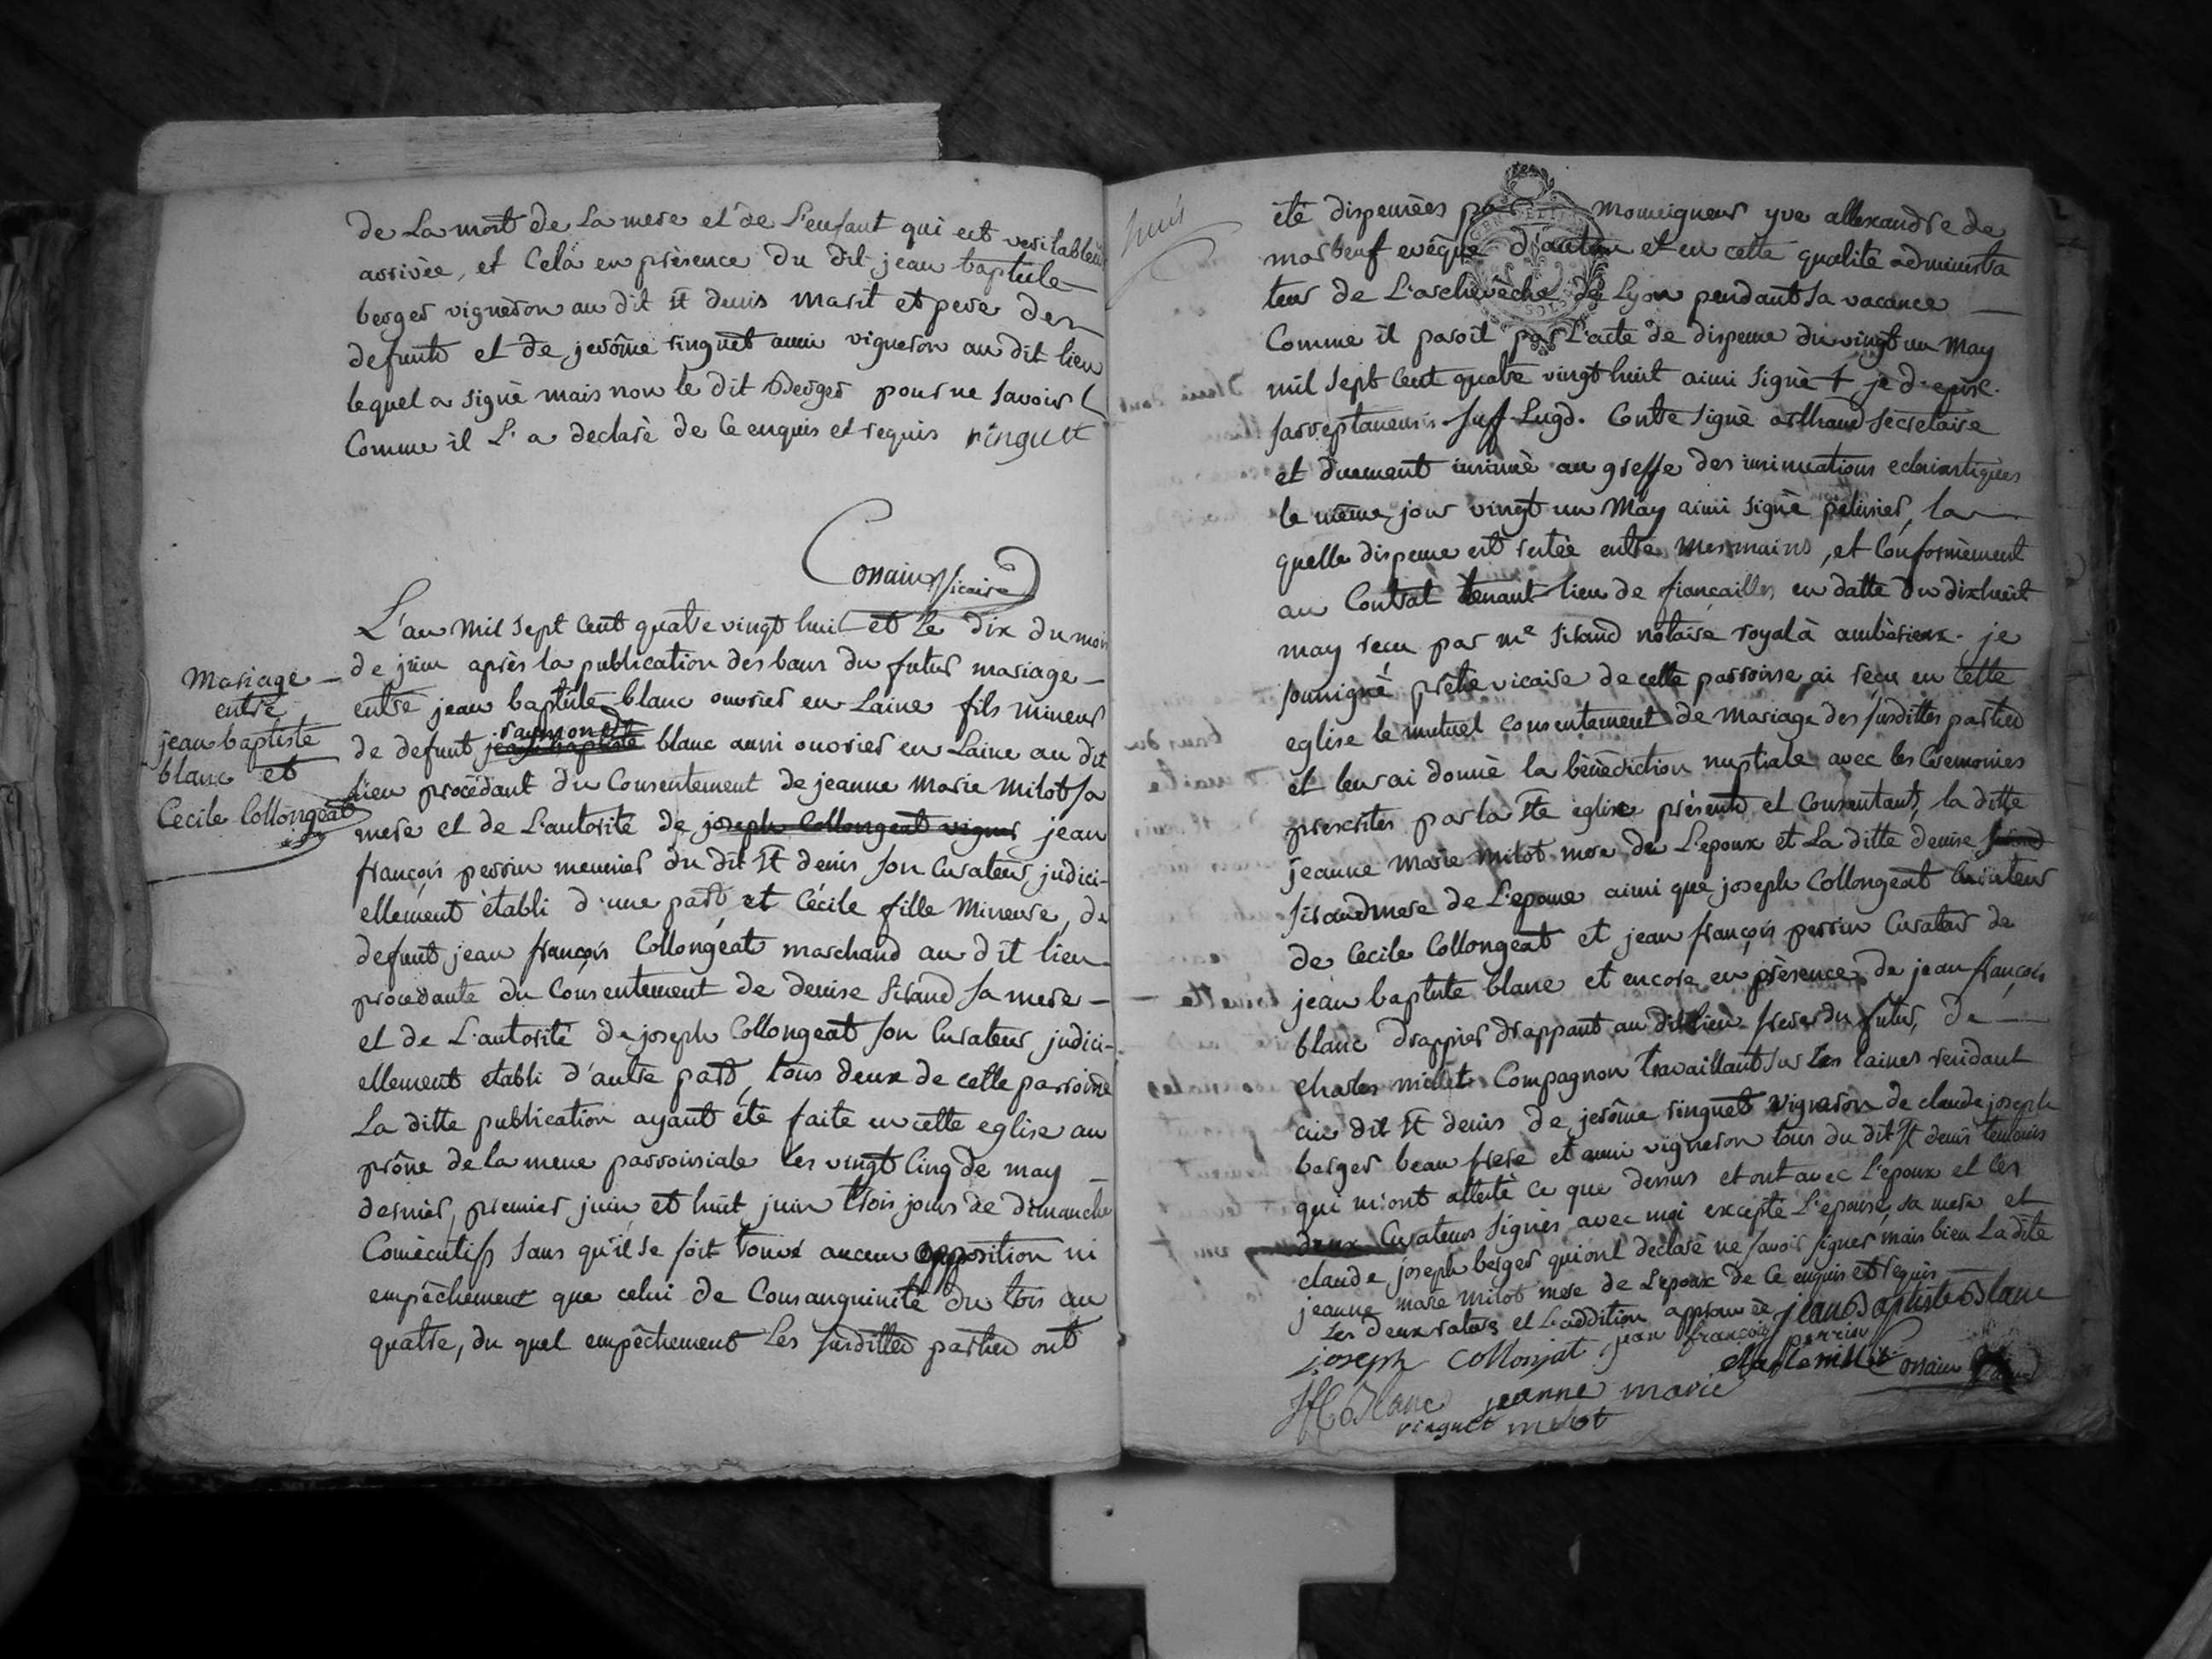 de La mort de La mere et de L'enfant qui est veritablem
arrivèe, et Cela en prèsence du dit jean baptiste
berger vigneron au dit St denis marit et pere des
defunts et de jerôme ringuet aussi vigneron au dit lieu
lequel a signè mais non le dit Berger pour ne savoir
Comme il L'a declarè de Ce enquis et requis ringuet
Cossain Vicaire
Mariage
entre
jean baptiste
blanc et
Cècile Collongeat
L'an mil sept cent quatre vingt huit et Le dix du mois
de juin après la publication des bans du futur mariage
entre jean baptiste blanc ouvrier en Laine fils mineur
raymond
de defunt jean baptiste blanc aussi ouvrier en Laine au dit
lieu procèdant du Consentement de jeanne Marie Milot sa
mere et de L'autorité de joseph Collongeat vigner jean
françois perrin meunier du dit St denis son Curateur judici-
ellement ètabli d'une part, et Cécile fille Mineure, de
defunt jean françois Collongeat marchand au dit lieu
procedante du Consentement de denise Sirand sa mere
et de L'autorité de joseph Collongeat son Curateur judici-
ellement etabli d'autre part, tous deux de cette parroisse
La ditte publication ayant étè faite en cette eglise au
prône de la messe parroissiale les vingt Cinq de may
dernier, premier juin et huit juin trois jours de dimanche
Consècutifs sans qu'il se soit trouvé aucun opposition ni
empêchement que celui de Consanguinité du trois au
quatre, du quel empêchement Les susdittes parties ont
huit
étè dispensèes par Monseigneur yve allexandre de
marbeuf evêque d'autun et en cette qualité administra
teur de L'archevèchè de Lyon pendant sa vacance
Comme il paroit par L'acte de dispense du vingt un May
mil sept cent quatre vingt huit ainsi signè + j. d. episc.
sarreptanensis. Suff. Lugd. Contre signè arthaud sècretaire
et duement insinuè au greffe des insinuations eclesiastiques
le même jour vingt un May ainsi signè pelissier, la
quelle dispense est restèe entre mes mains, et Conformèment
au Contrat tenant lieu de fiançailles en datte du dix huit
may recu par me Sirand notaire royal à ambèrieux. je
soussigné prêtre vicaire de cette parroisse ai recu en Cette
eglise le mutuel consentement de Mariage des susdittes parties
et leur ai donnè la bènèdiction nuptiale avec les Ceremonies
prescrites par la Ste eglise prèsents et Consentants, la ditte
jeanne Marie Milot mere de L'epoux et La ditte denise
Sirand mere de L'epouse ainsi que joseph Collongeat Curateur
de Cecile Collongeat et jean françois perrin Curateur de
jean baptiste blanc et encore en prèsence de jean françois
blanc drappier drappant au dit lieu frere du futur, de
charles millet Compagnon travaillant sur les laines rèsidant
au dit St denis de jerôme ringuet vigneron de claude joseph
berger beau frere et aussi vigneron tous du dit St denis temoins
qui m'ont attestè ce que dessus et ont avec L'epoux et les
deux Curateurs signès avec moi exceptè L'epouse, sa mere et
claude joseph berger qui ont declarè ne savoir signer mais bien La dite
jeanne marie Milot mere de L'epoux de Ce enquis et requis
Les deux ratures et L'addition approuvèe jean Baptiste Blanc
joseph Collonjat jean françois perrin
charle millet Cossain Vicaire
JF Blanc jeanne marie
ringuet milot